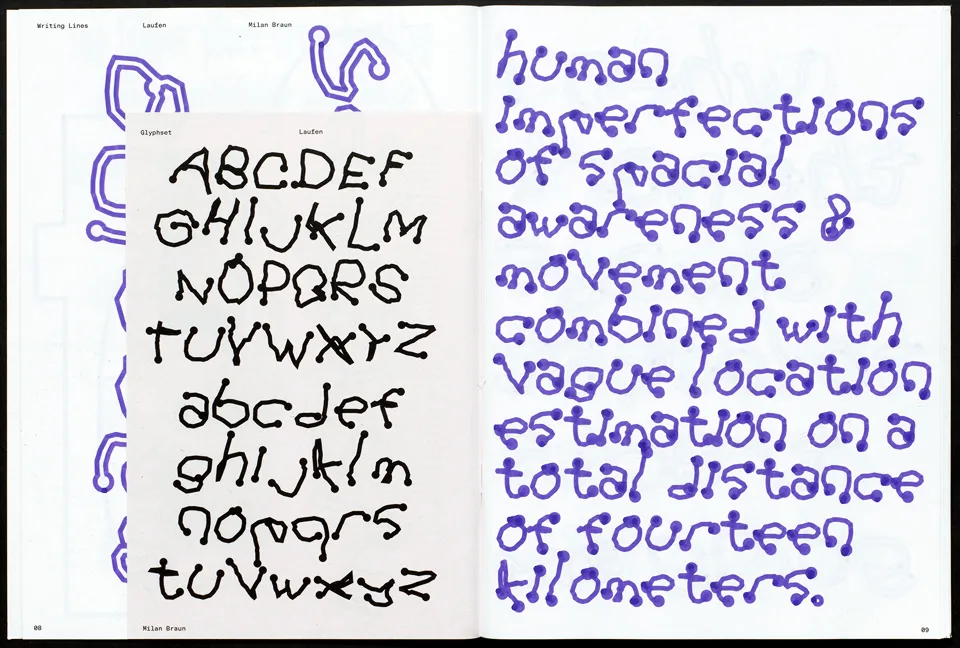 Writing Lines
Laufen
Milan Braun
Glyphset
Laufen
ABCDEF
GHIJKLM
NOPQRS
TUVWXYZ
abcdef
ghijklm
nopqrs
tuvwxyz
08
Milan Braun
human
imperfections
of spacial
awareness &
movement
combined with
vague location
estimation on a
total distance
of fourteen
kilometers.
09